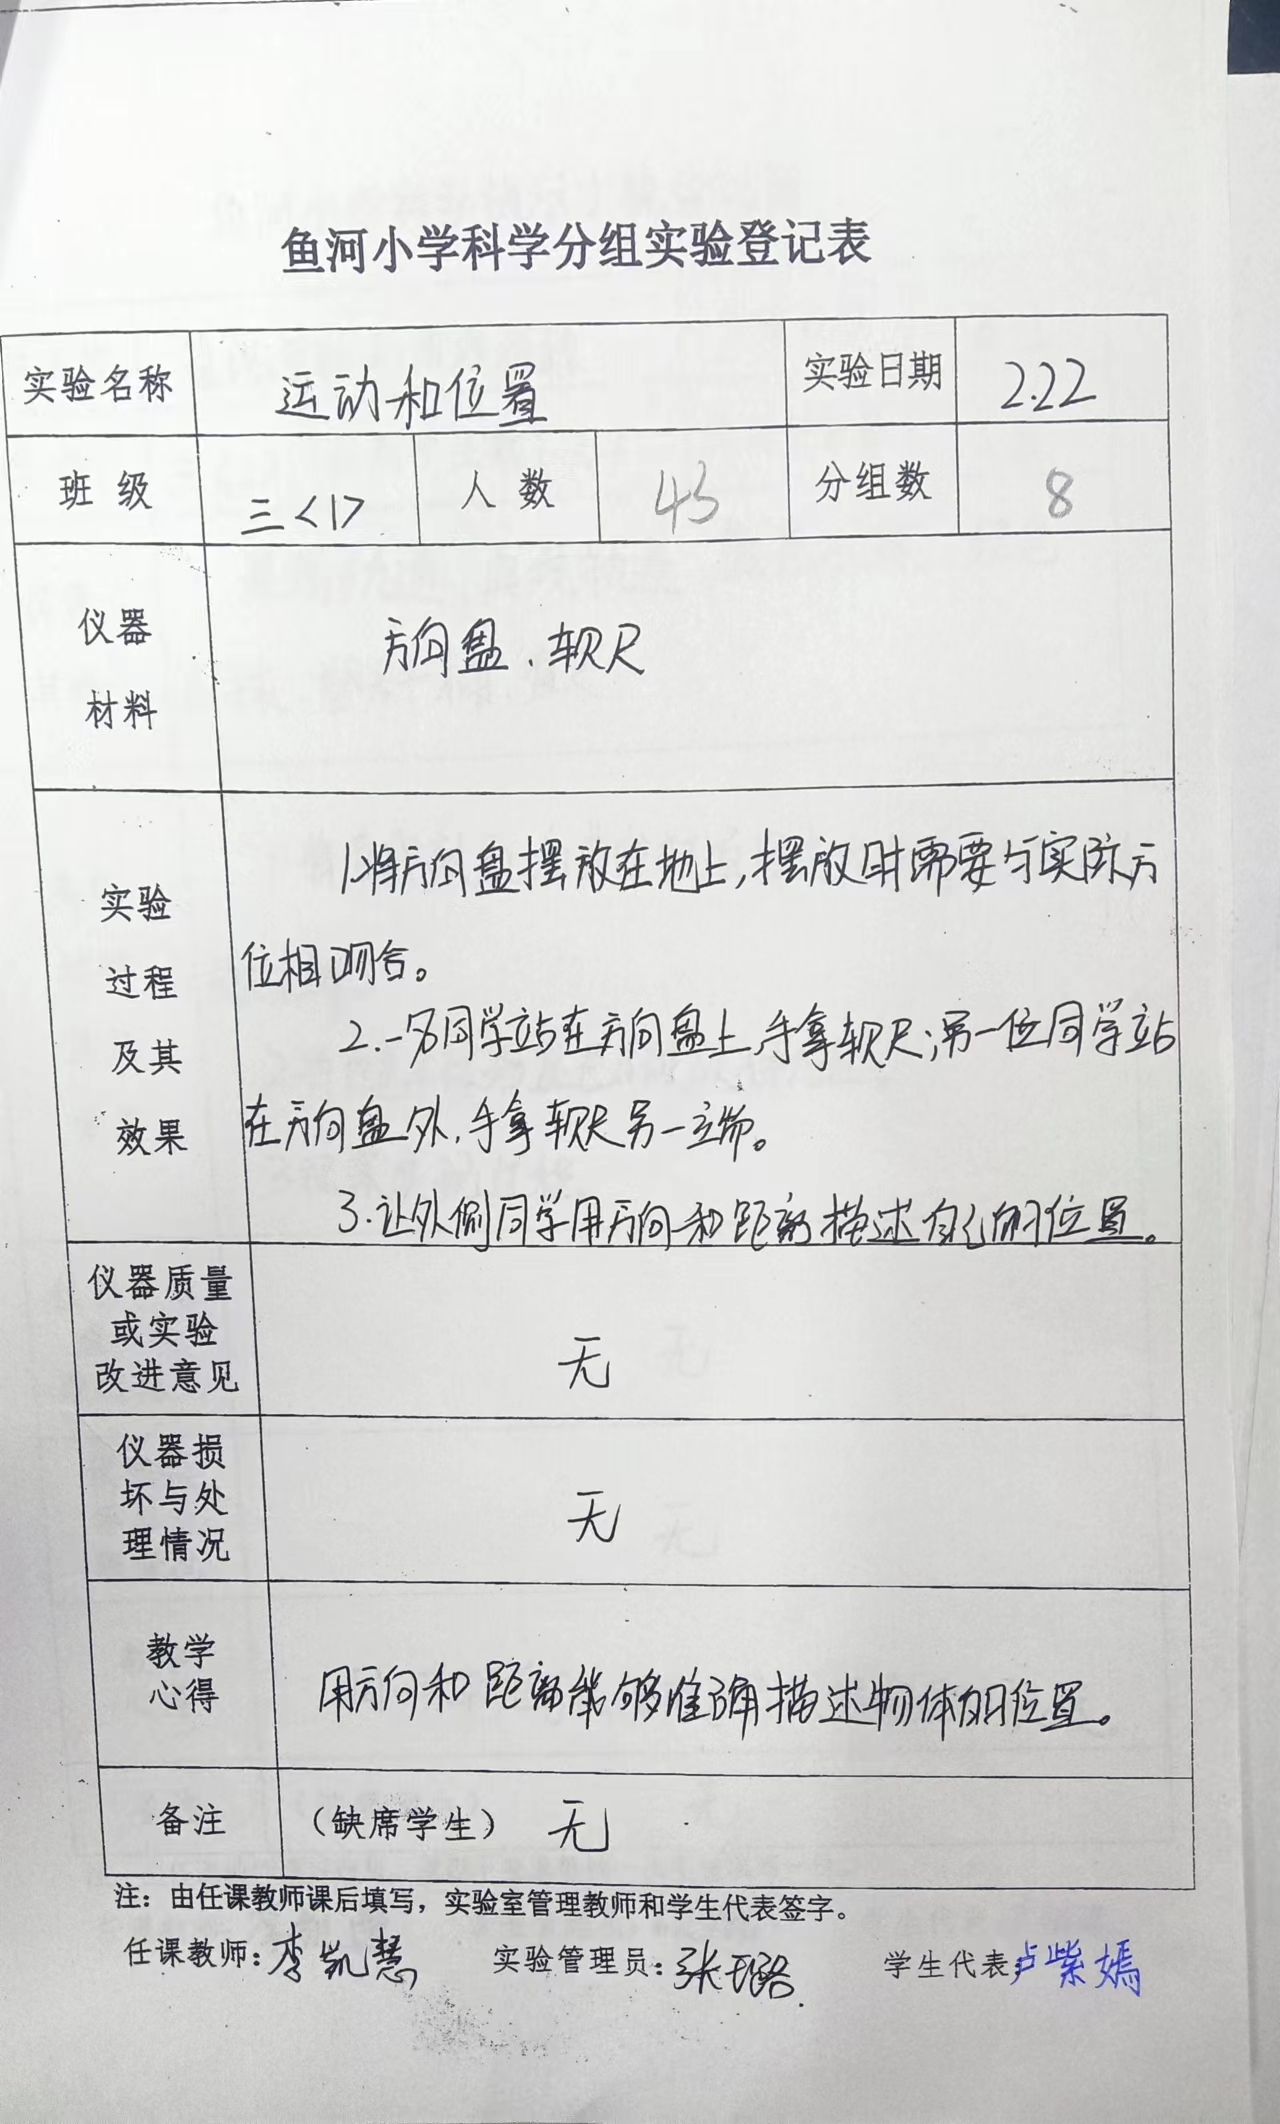 鱼河小学科学分组实验登记表
实验名称 运动和位置 实验日期 2.22
班 级 三<1> 人 数 43 分组数 8
仪器
材料
方向盘、软尺
实验
过程
及其
效果
1.将方向盘摆放在地上,摆放时需要与实际方
位相吻合。
2.一名同学站在方向盘上,手拿软尺;另一位同学站
在方向盘外,手拿软尺另一端。
3.让外侧同学用方向和距离描述自己的位置。
仪器质量
或实验
改进意见
无
仪器损
坏与处
理情况
无
教学
心得
用方向和距离能够准确描述物体的位置。
备注 (缺席学生) 无
注:由任课教师课后填写,实验室管理教师和学生代表签字。
任课教师:李凯慧 实验管理员:张璐 学生代表:卢紫嫣